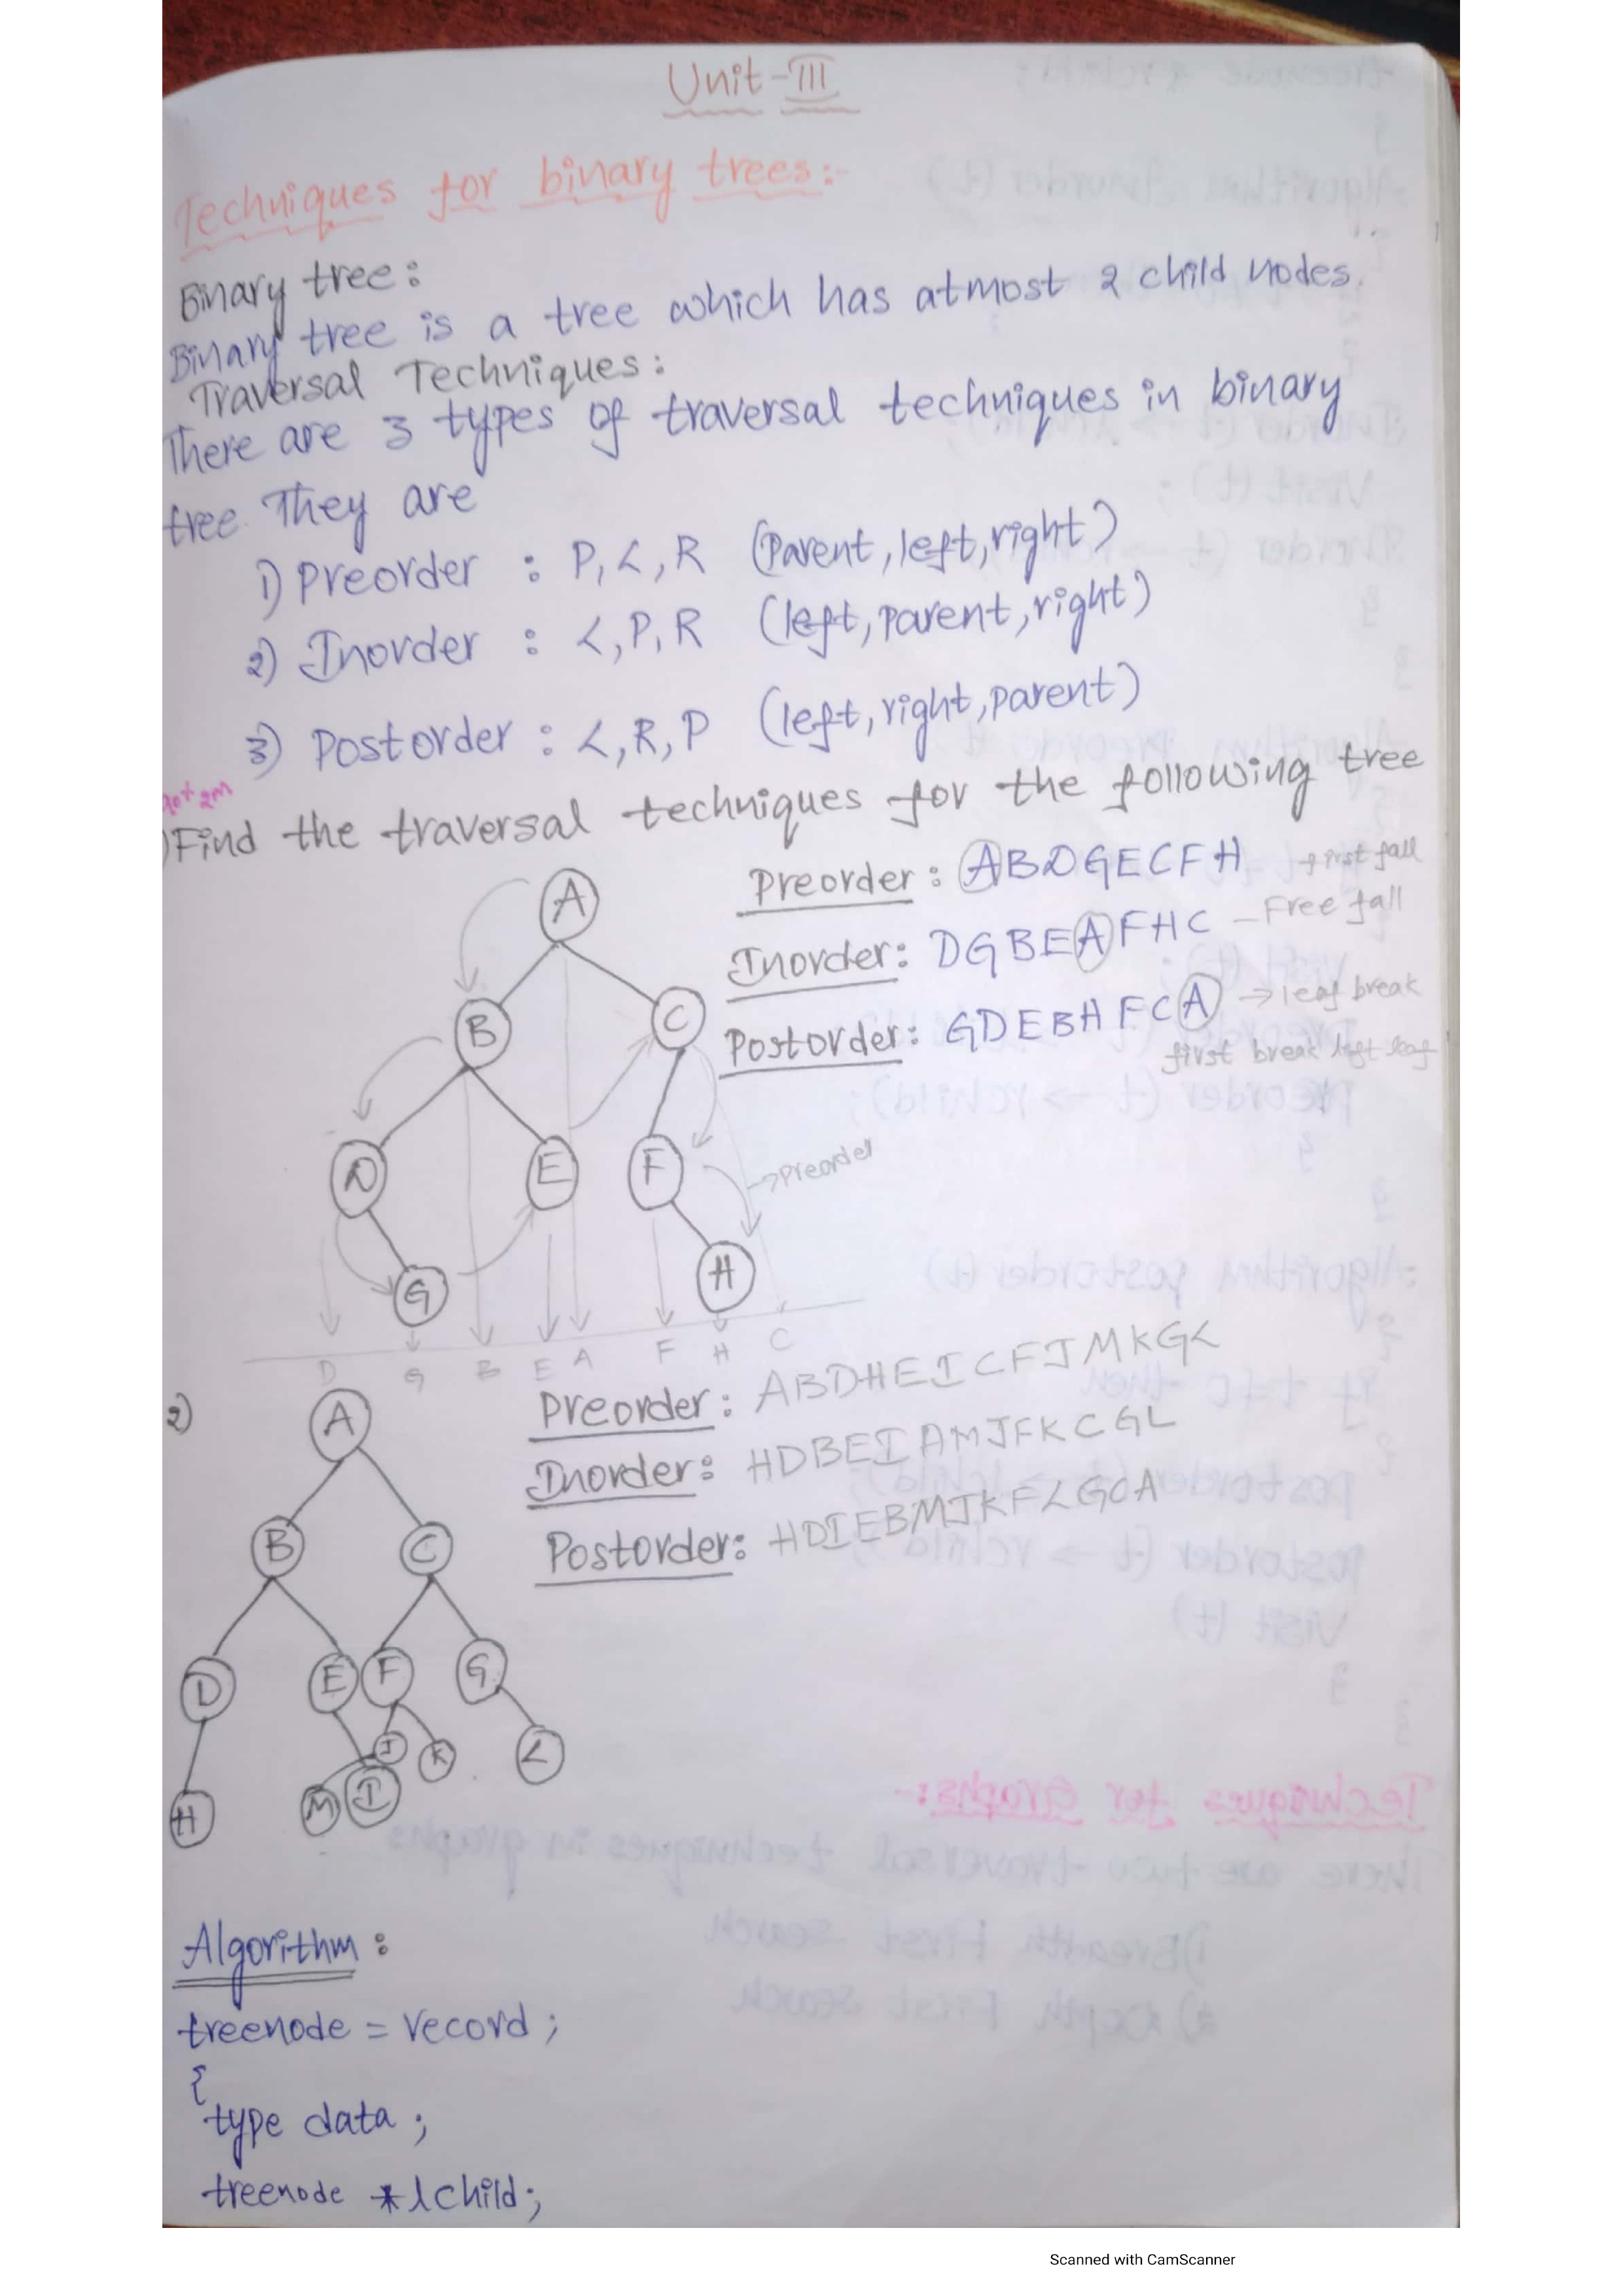 Unit-III
Techniques for binary trees:-
Binary tree:
Binary tree is a tree which has atmost 2 child nodes.
Traversal Techniques:
There are 3 types of traversal techniques in binary
tree. They are
1) Preorder : P, L, R (Parent, left, right)
2) Inorder : L, P, R (left, parent, right)
3) Postorder : L, R, P (left, right, parent)
2M
1) Find the traversal techniques for the following tree
Preorder: ABDGECFH first fall
Inorder: DGBEAFHC - Free fall
Postorder: GDEBHFCA → leaf break
first break left leaf
A
B
C
D
E
F
→ Preorder
G
H
D G B E A F H C
2)
Preorder: ABDHEICFJMKGL
Inorder: HDBEIAMJFKCGL
Postorder: HDIEBMJKFLGCA
A
B
C
D
E
F
G
J
K
L
M
I
H
Algorithm:
treenode = record;
{
type data;
treenode *lchild;
Scanned with CamScanner